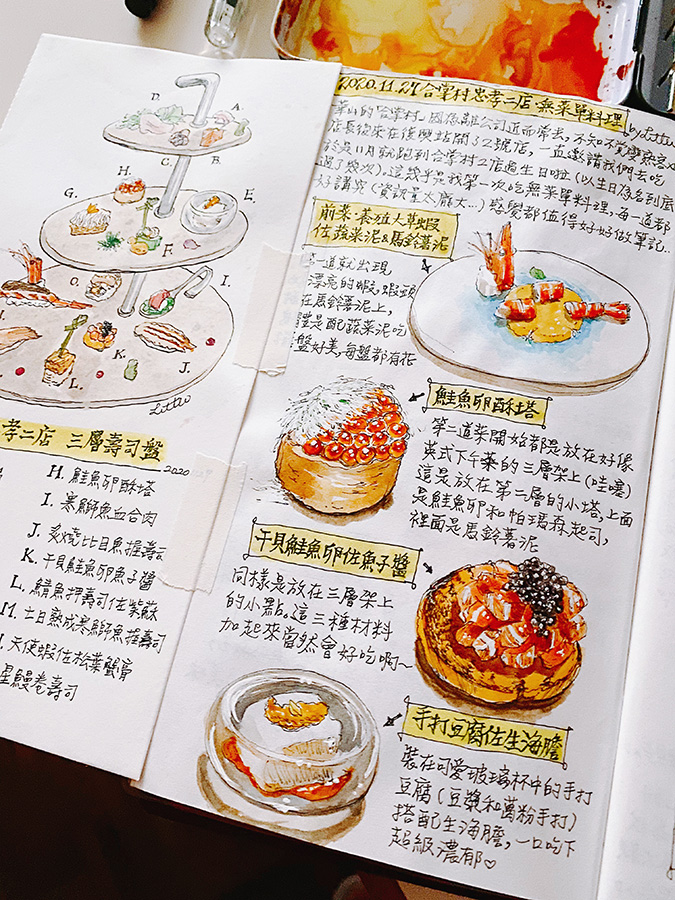 D.
A.
C.
B.
H.
G.
E.
F.
O.
I.
K.
J.
L.
Lottie
孝二店 三層壽司盤
2020
H. 鮭魚卵酥塔
I. 寒鰤魚血合肉
J. 炙燒比目魚握壽司
K. 干貝鮭魚卵魚子醬
L. 鯖魚押壽司佐紫蘇
M. 七日熟成寒鰤魚握壽司
天使蝦佐松葉蟹膏
星鰻卷壽司
2020.11.27 合掌村忠孝二店 無菜單料理
by Lottie
華山的合掌村,因為離公司近而常去,不知不覺變熟客
店長後來在復興站開了2號店,一直邀請我們去吃
於是11月就跑到合掌村2店過生日啦(以生日為名到底
過了幾次)。這幾乎是我第一次吃無菜單料理,每一道都
好講究(資訊量太龐大...)感覺都值得好好做筆記..
前菜:養殖大草蝦
佐蔬菜泥&馬鈴薯泥
一道就出現
漂亮的蝦,蝦頭
在馬鈴薯泥上,
是配蔬菜泥吃
盤好美,每盤都有花
鮭魚卵酥塔
第二道菜開始都是放在好像
英式下午茶的三層架上(哇塞)
這是放在第二層的小塔,上面
是鮭魚卵和帕瑪森起司,
裡面是馬鈴薯泥
干貝鮭魚卵佐魚子醬
同樣是放在三層架上
的小點。這三種材料
加起來當然會好吃啊~
手打豆腐佐生海膽
裝在可愛玻璃杯中的手打
豆腐(豆漿和葛粉手打)
搭配生海膽,一口吃下
超級濃郁♡